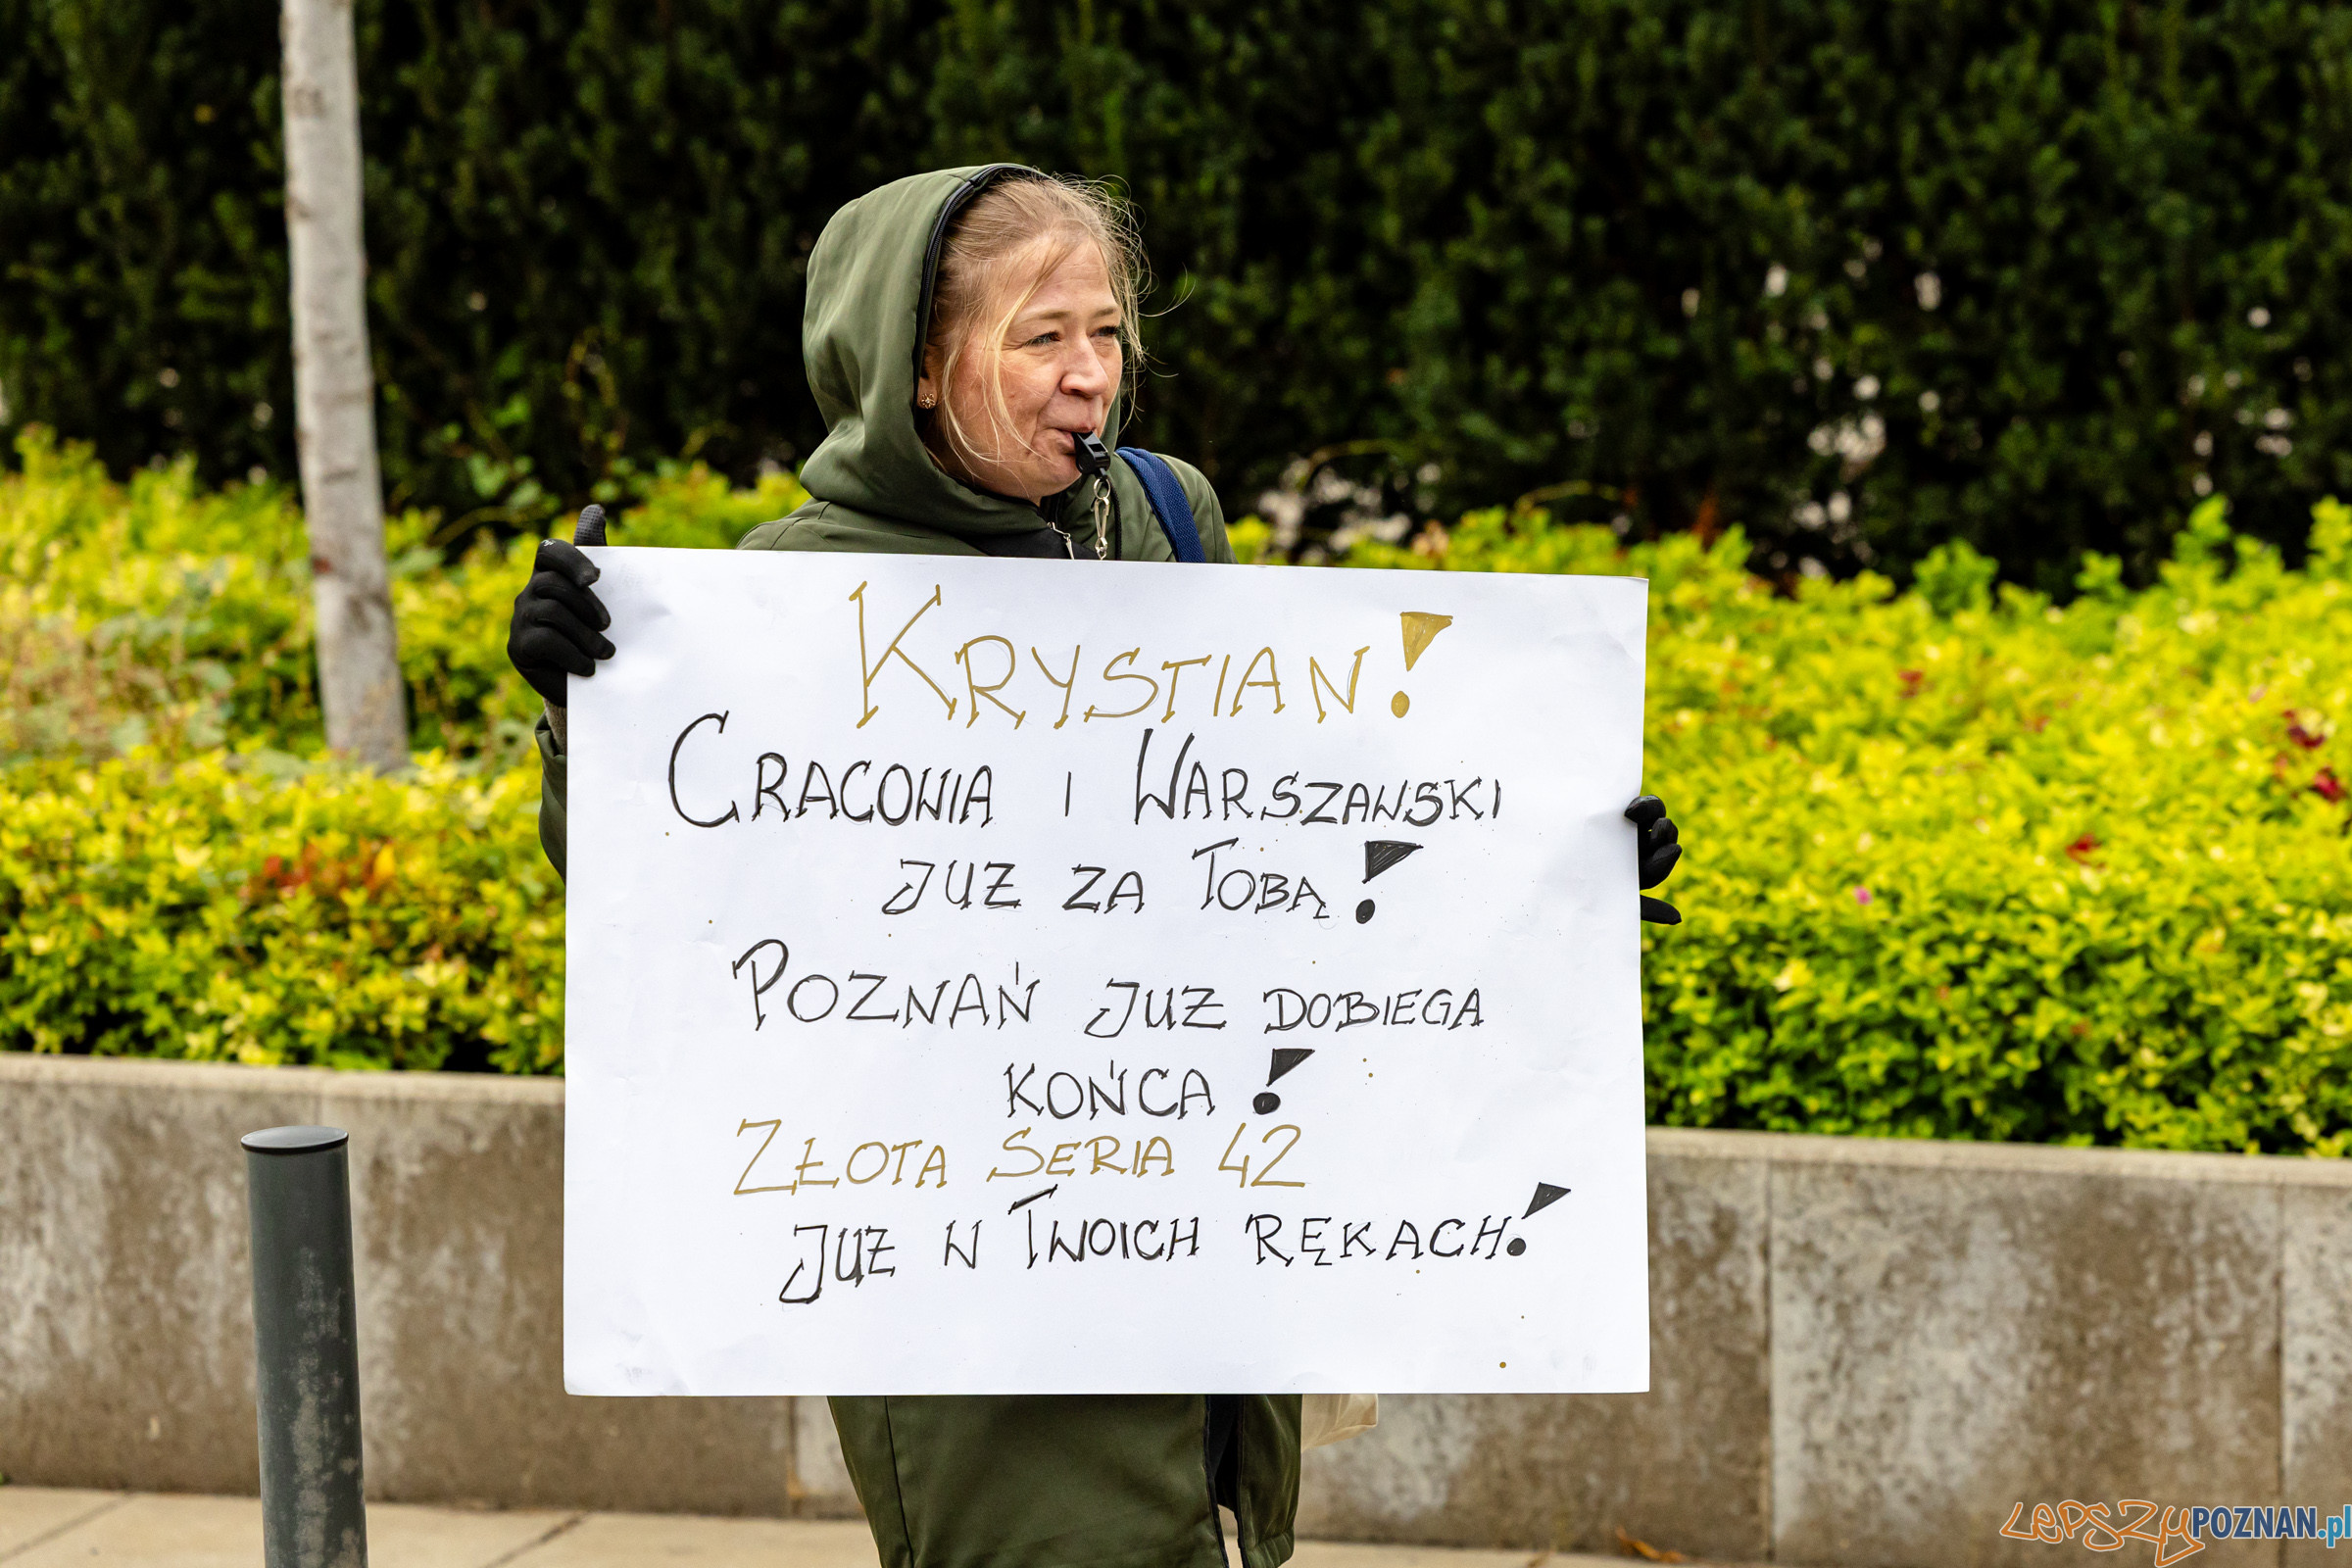 KRYSTIAN!
CRACOVIA I WARSZAWSKI
JUŻ ZA TOBĄ!
POZNAŃ JUŻ DOBIEGA
KOŃCA!
ZŁOTA SERIA 42
JUŻ W TWOICH RĘKACH!
LEPSZYPOZNAN.pl